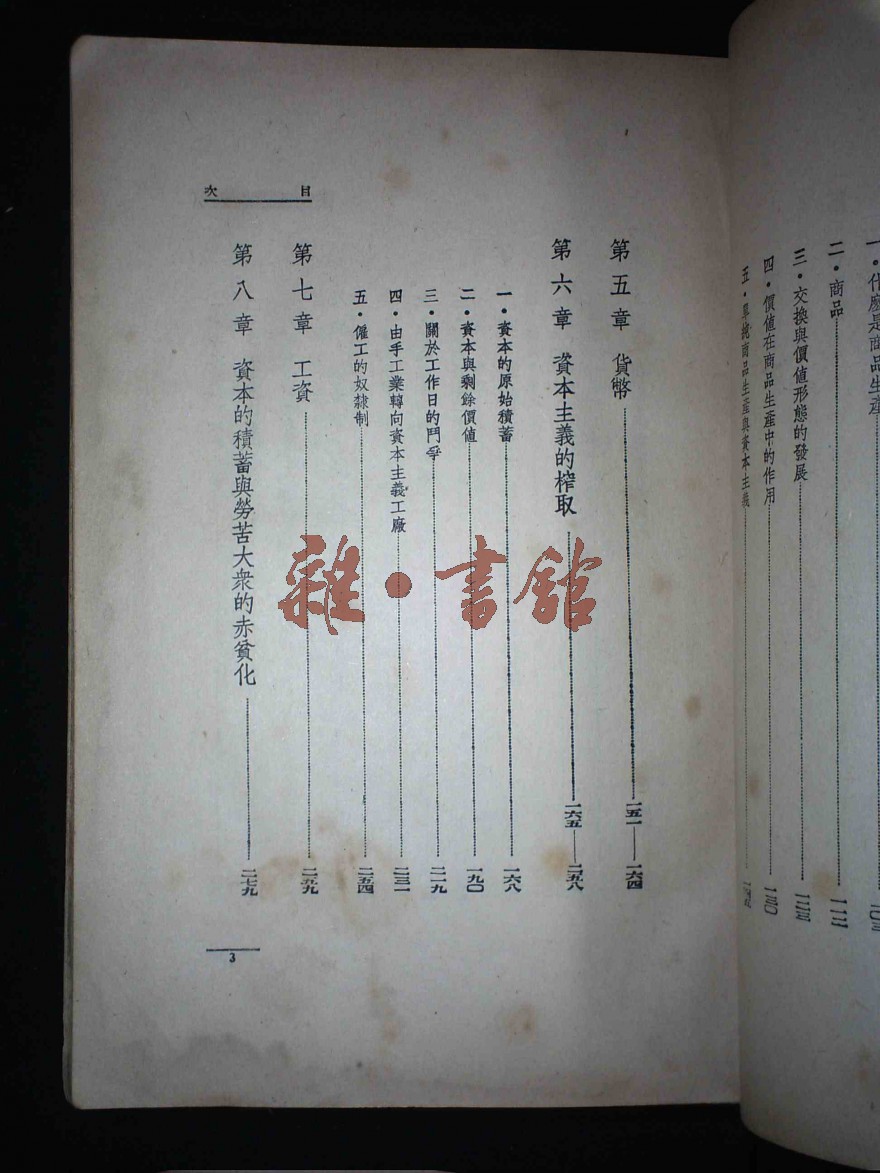 一・什麼是商品生產
二・商品……一一二
三・交換與價值形態的發展……一二三
四・價值在商品生產中的作用……一三〇
五・單純商品生產與資本主義……
目次
第五章 貨幣……一五一—一六四
第六章 資本主義的榨取……一六五—二五八
一・資本的原始積蓄……一六八
二・資本與剩餘價值……一九〇
三・關於工作日的鬥爭……二一九
四・由手工業轉向資本主義工廠……二三一
五・僱工的奴隸制……二五四
第七章 工資……二五九
第八章 資本的積蓄與勞苦大衆的赤貧化……二七九
3
雜・書館